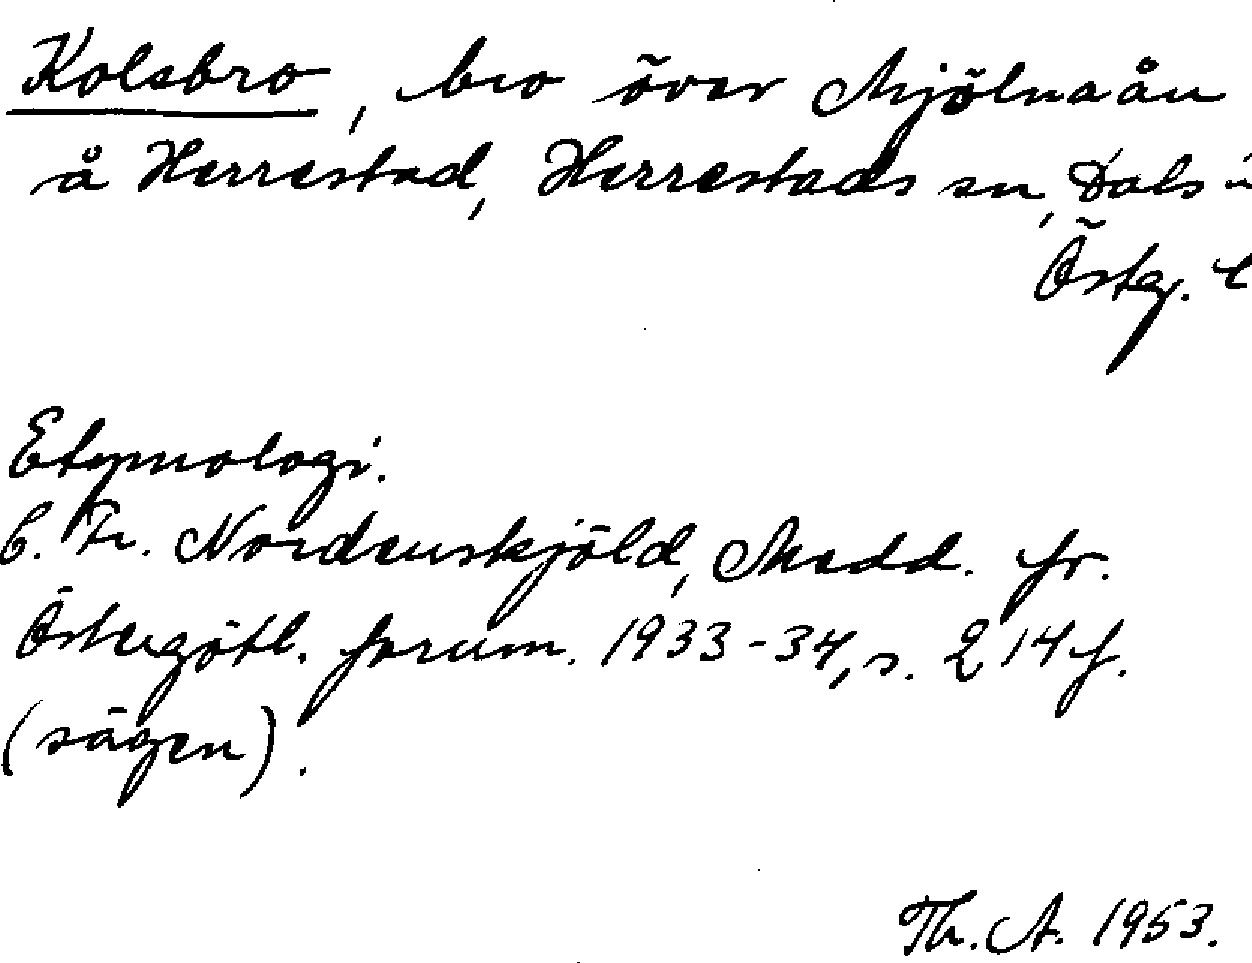 Kolsbro, bro över Mjölnaån
å Herrestad, Herrestads sn, Dals
Östg. l
Etymologi.
C. Fr. Nordenskjöld, Medd. fr.
Östergötl. fornm. 1933-34, s. 214 f.
(sägen).
Th. A. 1953.